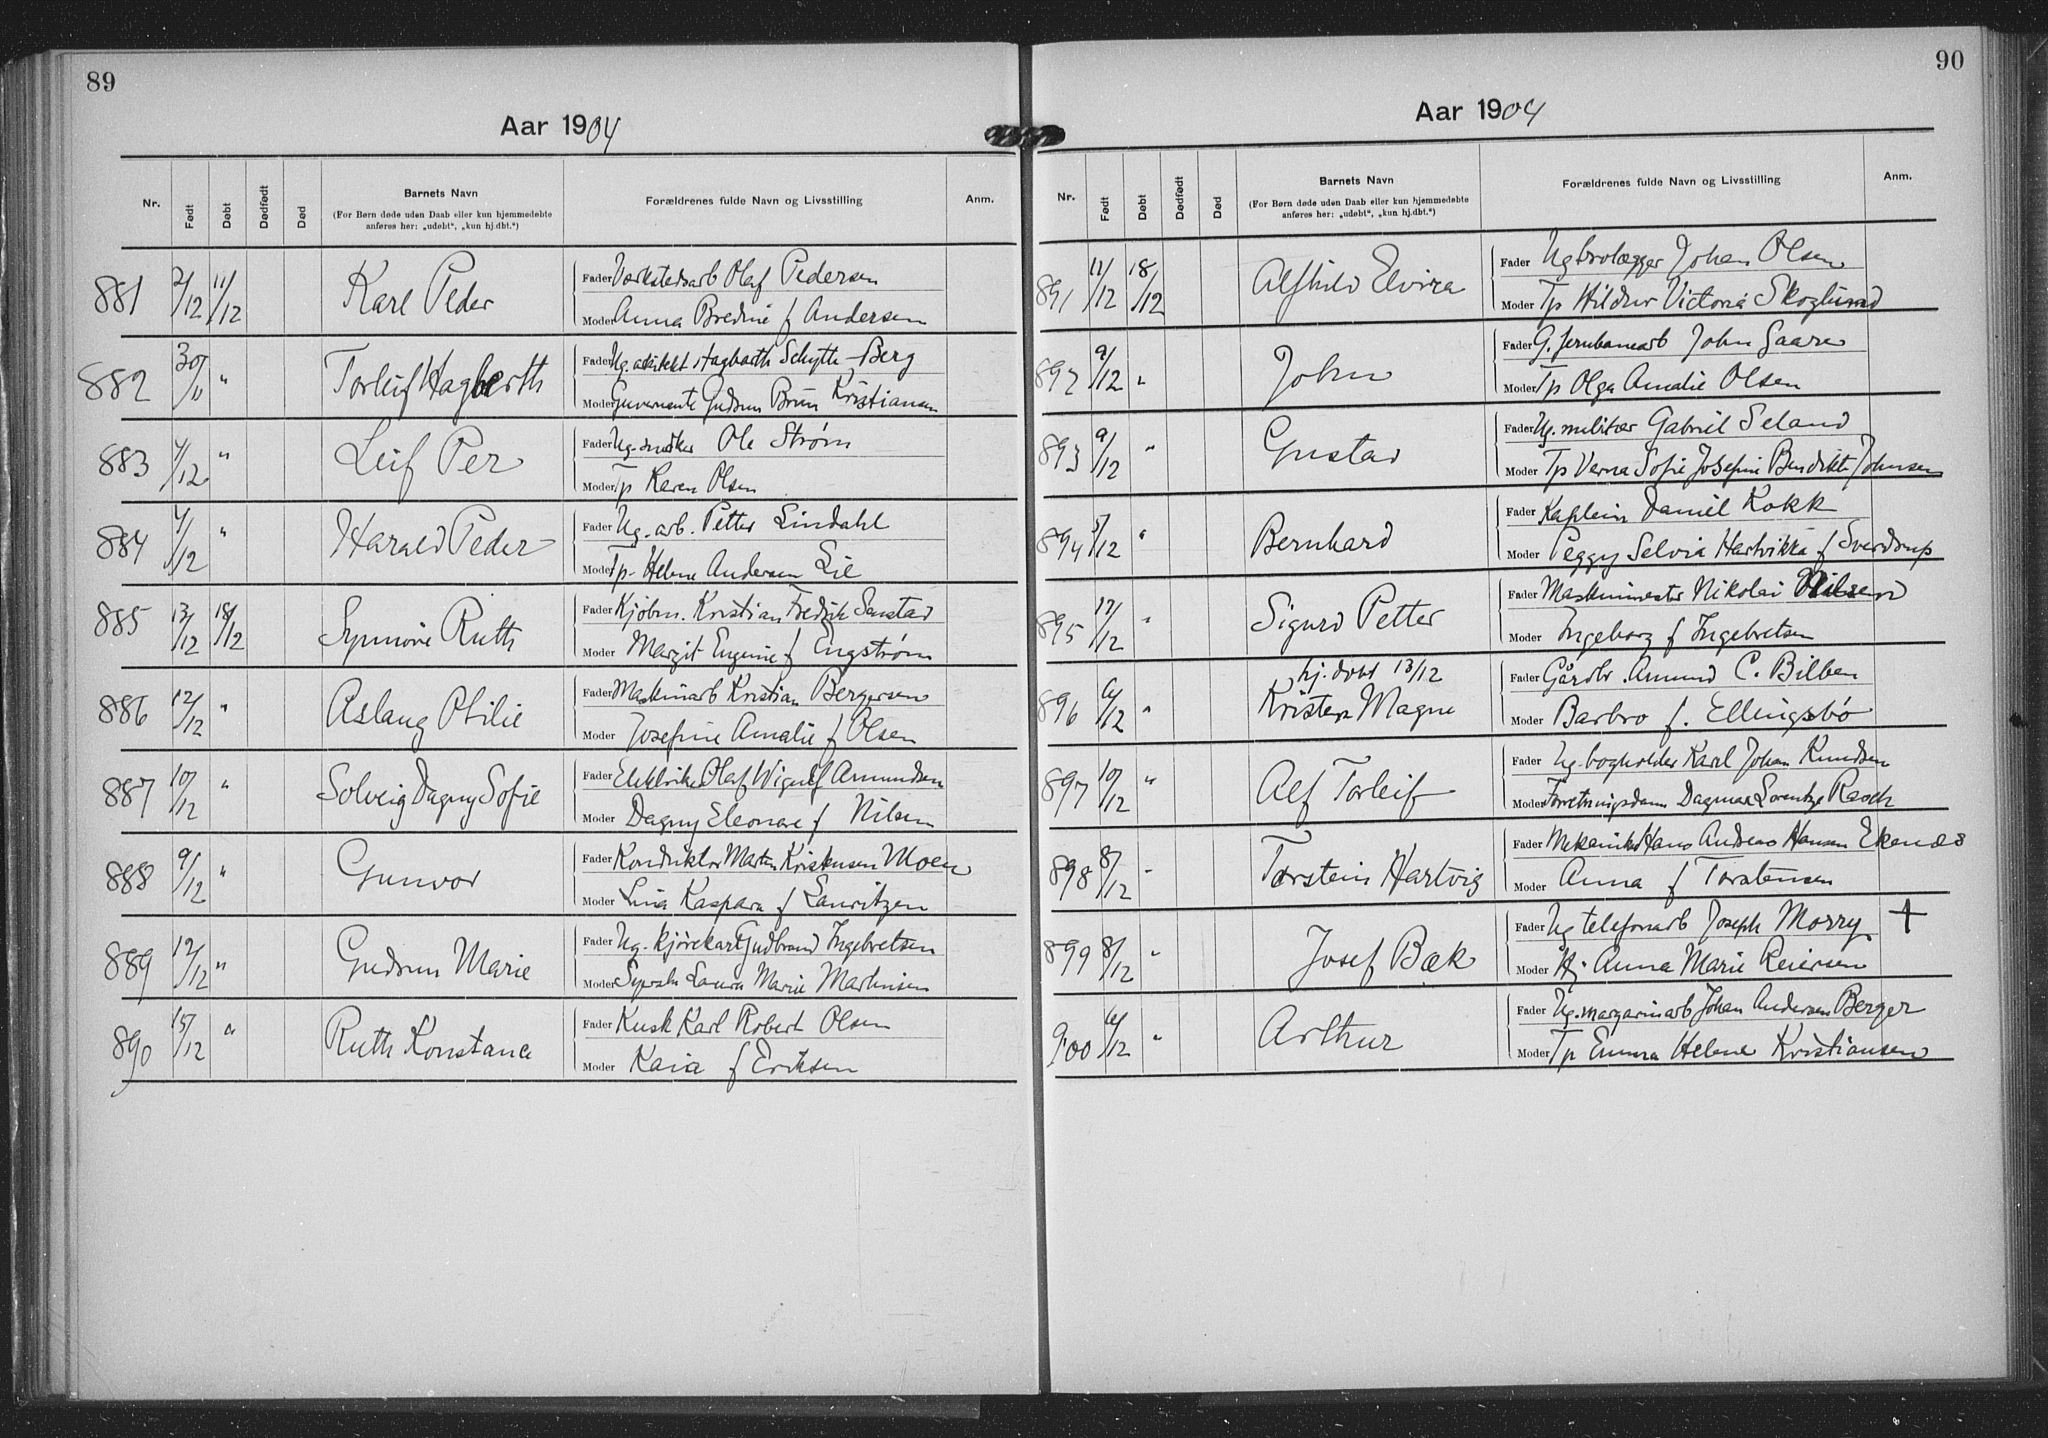 89
Aar 1904
Nr. Født Døbt Dødfødt Død Barnets Navn Forældrenes fulde Navn og Livsstilling Anm.
(For Børn døde uden Daab eller kun hjemmedøbte
anføres her: „udøbt“, „kun hj.dbt.“)
881 2/12 11/12 Karl Peder Fader Værkstedsarb Olaf Pedersen
Moder Anna Bredine f Andersen
882 30/11 " Torleif Hagbarth Fader Ug. arkitekt Hagbarth Schytte-Berg
Moder Guvernante Gudrun Brun Kristiansen
883 4/12 " Leif Per Fader Ug. snedker Ole Strøm
Moder Tp Karen Olsen
884 4/12 " Harald Peder Fader Ug. arb. Petter Lindahl
Moder Tp- Helene Andersen Lie
885 13/12 18/12 Synnøve Ruth Fader Kjøbm. Kristian Fredrik Senstad
Moder Margit Eugenie f Engstrøm
886 12/12 " Aslaug Otilie Fader Maskinarb Kristian Bergersen
Moder Josefine Amalie f Olsen
887 10/12 " Solveig Dagny Sofie Fader Elektriker Olaf Wigulf Amundsen
Moder Dagny Eleonore f Nilsen
888 9/12 " Gunvor Fader Konduktør Martin Kristensen Moen
Moder Lina Kaspara f Lauritzen
889 12/12 " Gudrun Marie Fader Ug. kjørekarl Gudbrand Ingebretsen
Moder Syersk Laura Marie Martinsen
890 15/12 " Ruth Konstance Fader Kusk Karl Robert Olsen
Moder Kaia f Eriksen
90
Aar 1904
Nr. Født Døbt Dødfødt Død Barnets Navn Forældrenes fulde Navn og Livsstilling Anm.
(For Børn døde uden Daab eller kun hjemmedøbte
anføres her: „udøbt“, „kun hj.dbt.“)
891 11/12 18/12 Alfhild Elvira Fader Ug brolægger Johan Olsen
Moder Tp Hildur Victoria Skoglund
892 9/12 " John Fader G. Jernbanearb John Gaare
Moder Tp Olga Amalie Olsen
893 9/12 " Gustav Fader Ug. militær Gabriel Seland
Moder Tp Verna Sofie Josefine Bendikte Johnsen
894 5/12 " Bernhard Fader Kaptein Daniel Kokk
Moder Peggy Selvia Hartvikka f Sverdrup
895 12/12 " Sigurd Petter Fader Maskinmester Nikolai Nilsen
Moder Ingeborg f Ingebretsen
hj. døbt 13/12
896 6/12 " Kristen Magne Fader Gårdbr. Amund C. Bilben
Moder Barbro f. Ellingsbø
897 10/12 " Alf Torleif Fader Ug. bogholder Karl Johan Knudsen
Moder Forretningsdame Dagmar Lorentze Rasch
898 8/12 " Torstein Hartvig Fader Mekaniker Hans Andreas Hansen Ekenes
Moder Anna f Torstensen
899 8/12 " Josef Bæk Fader Ug telefonarb Joseph Morry +
Moder Hj Anna Marie Reiersen
900 6/12 " Arthur Fader Ug. margarinarb Johan Andersen Berger
Moder Tp Emma Helene Kristiansen